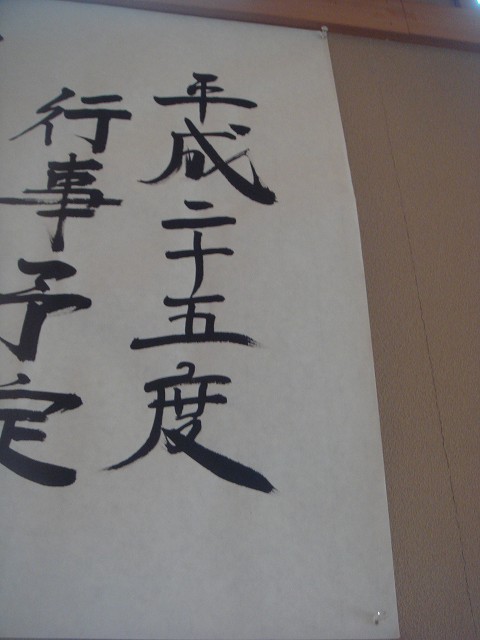 平成二十五度
行事予定